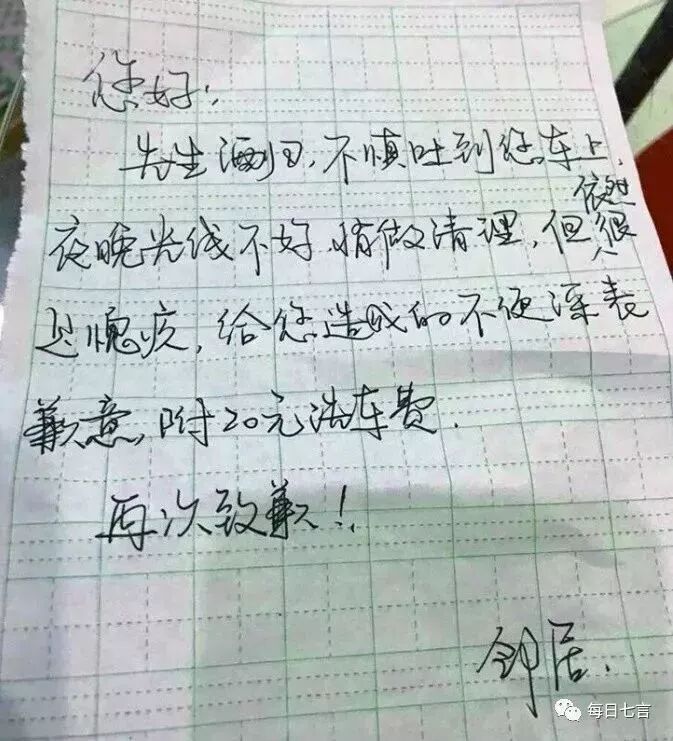 您好:
先生酒归,不慎吐到您车上,
夜晚光线不好,稍微清理,但依然很
是愧疚,给您造成的不便深表
歉意,附20元洗车费.
再次致歉!
邻居.
每日七言